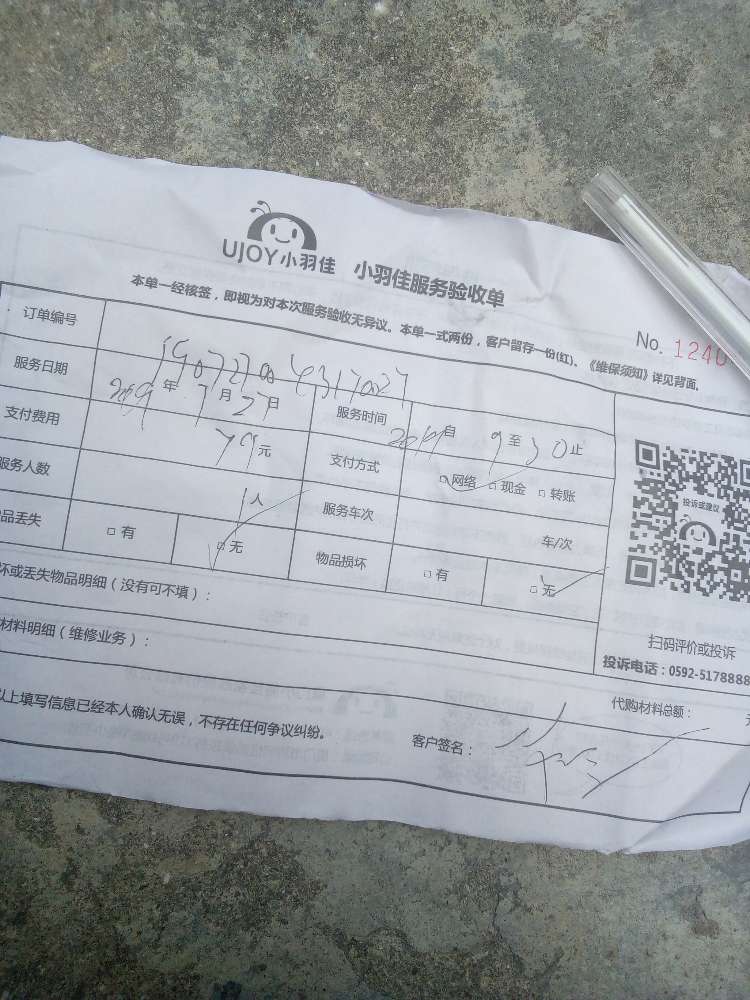 UJOY小羽佳 小羽佳服务验收单
本单一经核签，即视为对本次服务验收无异议。本单一式两份，客户留存一份(红)。《维保须知》详见背面。
No. 1240
订单编号 19072700 4317027
服务日期 2019年 7月27日 服务时间 自 9至30止
支付费用 79元 支付方式 □网络 □现金 □转账
服务人数 1人 服务车次 车/次
品丢失 □有 □无 物品损坏 □有 □无
坏或丢失物品明细（没有可不填）：
材料明细（维修业务）：
投诉或建议
扫码评价或投诉
投诉电话：0592-5178888
代购材料总额：
以上填写信息已经本人确认无误，不存在任何争议纠纷。 客户签名：